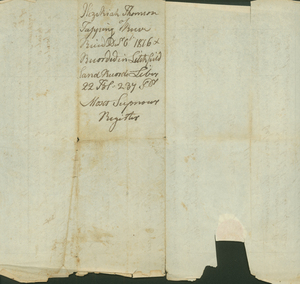 Hezekiah Thomson
Tapping Reeve
1816
Recorded in Litchfield
Land Records Liber
22 Fol- 237
Moses Seymour
Register